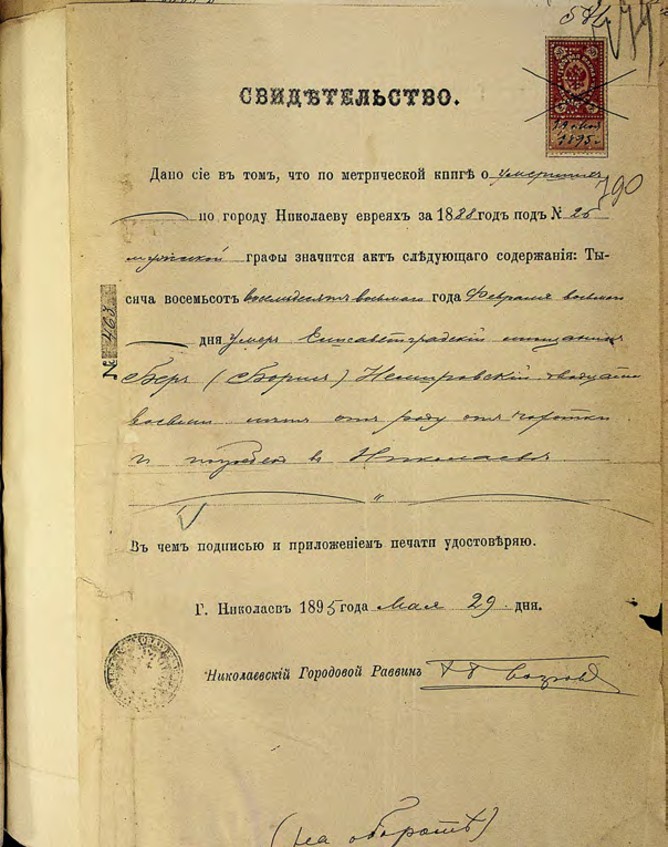 СВИДѢТЕЛЬСТВО.
190
Дано сіе въ томъ, что по метрической книгѣ о умершихъ
по городу Николаеву евреяхъ за 1888 годъ подъ № 25
мужской графы значится актъ слѣдующаго содержанія: Ты-
сяча восемьсотъ восемьдесятъ восьмого года Февраля восьмого
дня умеръ Елисаветградскій мѣщанинъ
Беръ (Борисъ) Немировскій двадцати
восьми лѣтъ отъ роду отъ чахотки
и погребенъ въ Николаевѣ
"
Въ чемъ подписью и приложеніемъ печати удостовѣряю.
Г. Николаевъ 1895 года Мая 29 дня.
Николаевскій Городовой Раввинъ
№ 463
1895
(на оборотѣ)